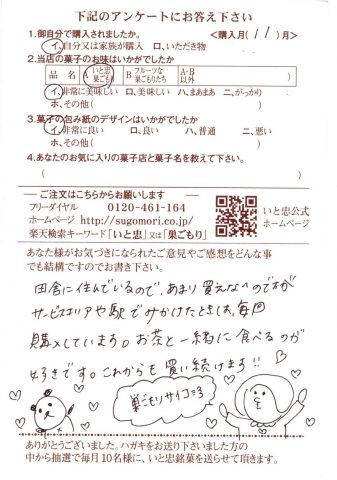 下記のアンケートにお答え下さい
1.御自分で購入されましたか。 <購入月( 11 )月>
イ.自分又は家族が購入 ロ.いただき物
2.当店の菓子のお味はいかがでしたか
品 名 A いと忠 巣ごもり B フルーツな 巣ごもりたち A・B 以外
イ.非常に美味しい ロ.美味しい ハ.まあまあ ニ.がっかり
ホ.その他( )
3.菓子の包み紙のデザインはいかがでしたか
イ.非常に良い ロ.良い ハ.普通 ニ.悪い
ホ.その他( )
4.あなたのお気に入りの菓子店と菓子名を教えて下さい。
( )
ご注文はこちらからお願いします
フリーダイヤル 0120-461-164
ホームページ http://sugomori.co.jp/
楽天検索キーワード「いと忠」又は「巣ごもり」
いと忠公式
ホームページ
あなた様がお気づきになられたご意見やご感想をどんな事
でも結構ですのでお書き下さい。
田舎に住んでいるので、あまり買えないのですが
サービスエリアや駅でみかけたときは、毎回
購入しています。お茶と一緒に食べるのが
好きです。これからも買い続けます!!
巣ごもりサイコー
ありがとうございました。ハガキをお送り下さいました方の
中から抽選で毎月10名様に、いと忠銘菓を送らせて頂きます。